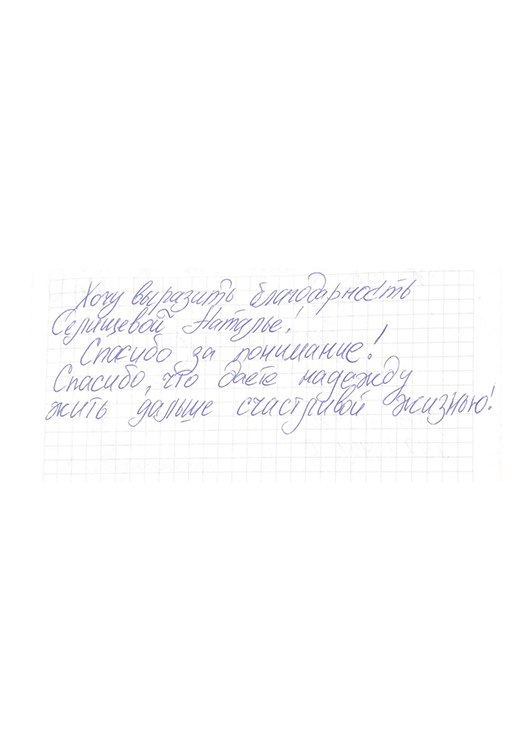 Хочу выразить благодарность
Селищевой Наталье!
Спасибо за понимание!
Спасибо, что даёте надежду
жить дальше счастливой жизнью!